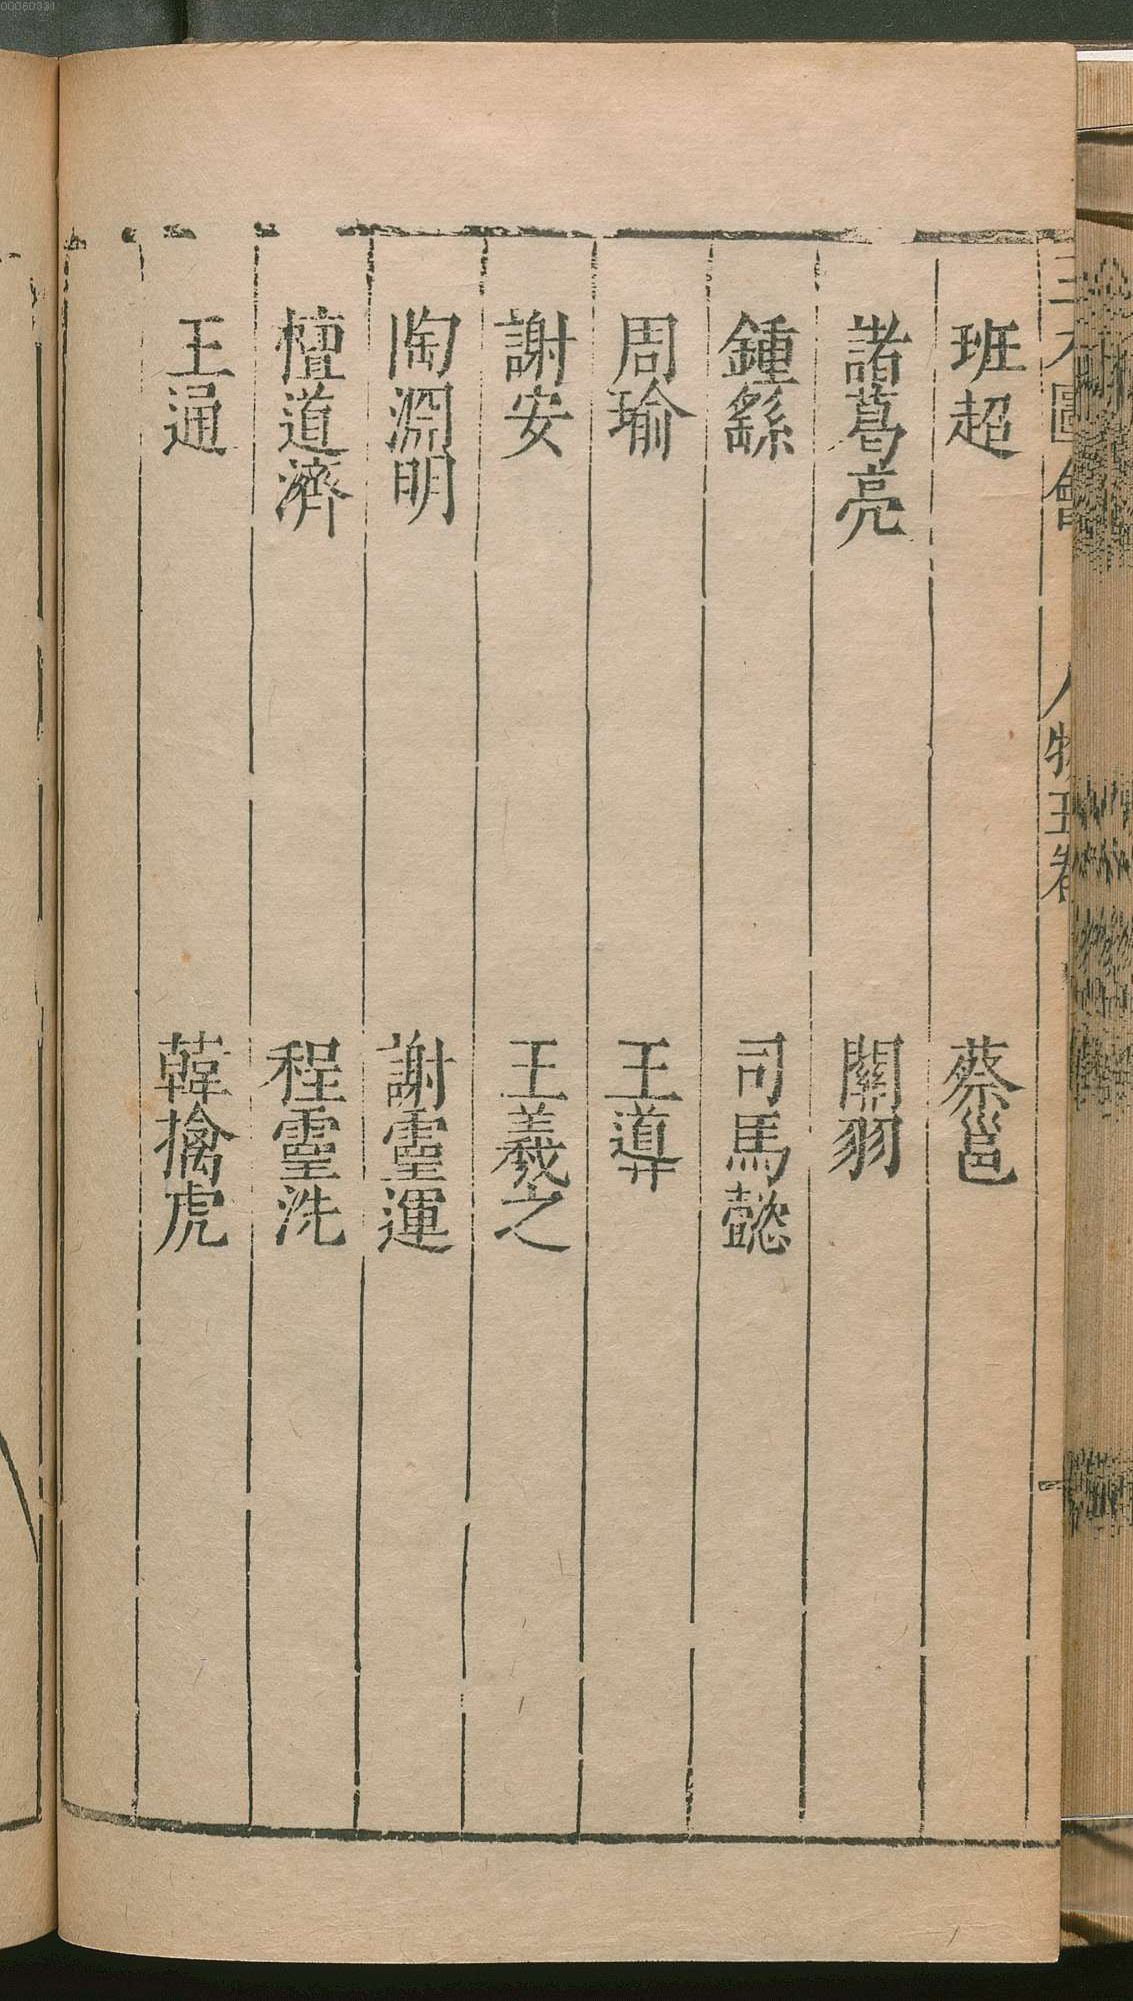 00060331
三才圖會 人物五卷
班超 蔡邕
諸葛亮 關羽
鍾繇 司馬懿
周瑜 王導
謝安 王羲之
陶淵明 謝靈運
檀道濟 程靈洗
王通 韓擒虎